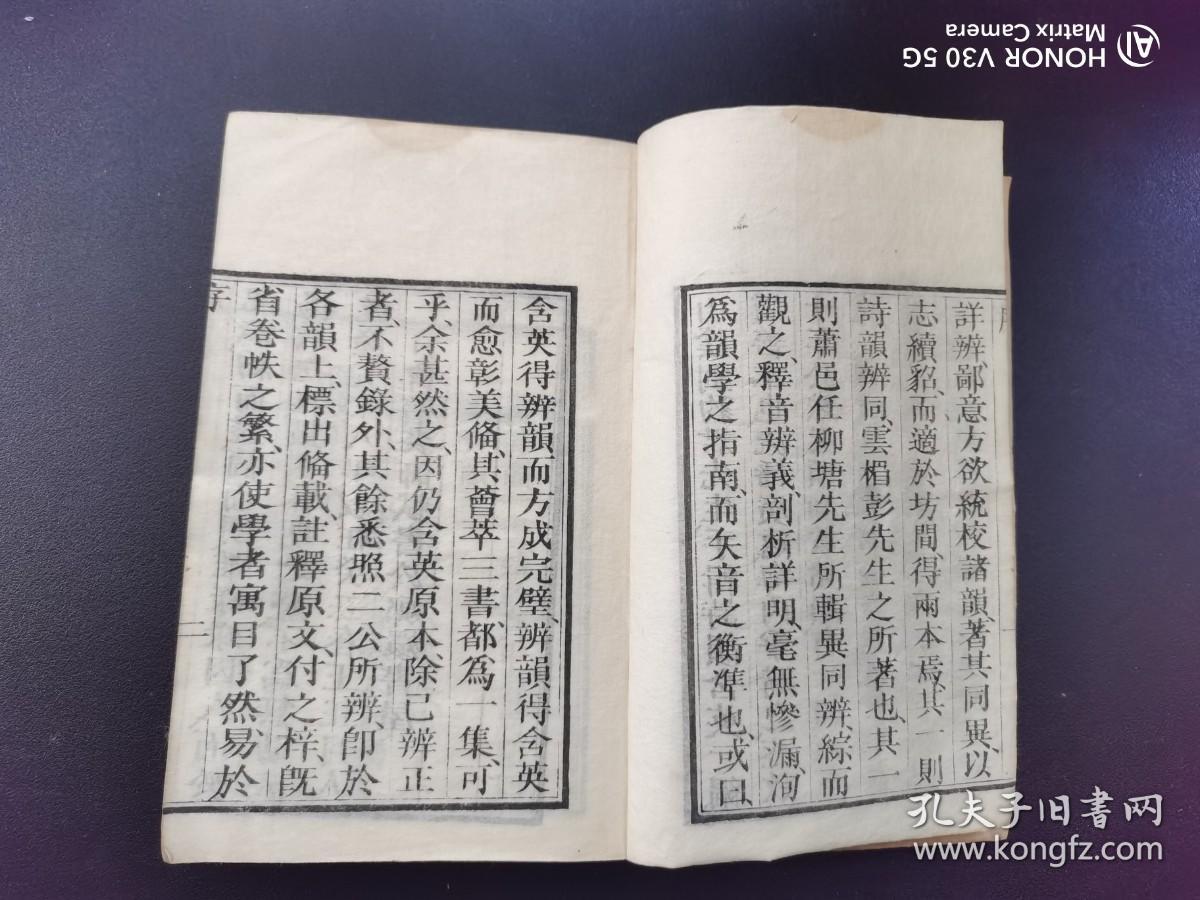 HONOR V30 5G
Matrix Camera
AI
詳辨、鄙意方欲統校諸韻、著其同異、以
志續貂、而適於坊間、得兩本焉、其一則
詩韻辨同、雲楣彭先生之所著也、其一
則蕭邑任柳塘先生所輯異同辨、綜而
觀之、釋音辨義、剖析詳明、毫無慘漏、洵
爲韻學之指南、而矢音之衡準也、或曰、
含英得辨韻、而方成完璧、辨韻得含英
而愈彰美俻、其薈萃三書、都爲一集、可
乎、余甚然之、因仍含英原本、除已辨正
者、不贅錄外、其餘悉照二公所辨、卽於
各韻上、標出俻載、註釋原文、付之梓、旣
省卷帙之繁、亦使學者寓目了然、易於
序
二
孔夫子旧书网
www.kongfz.com